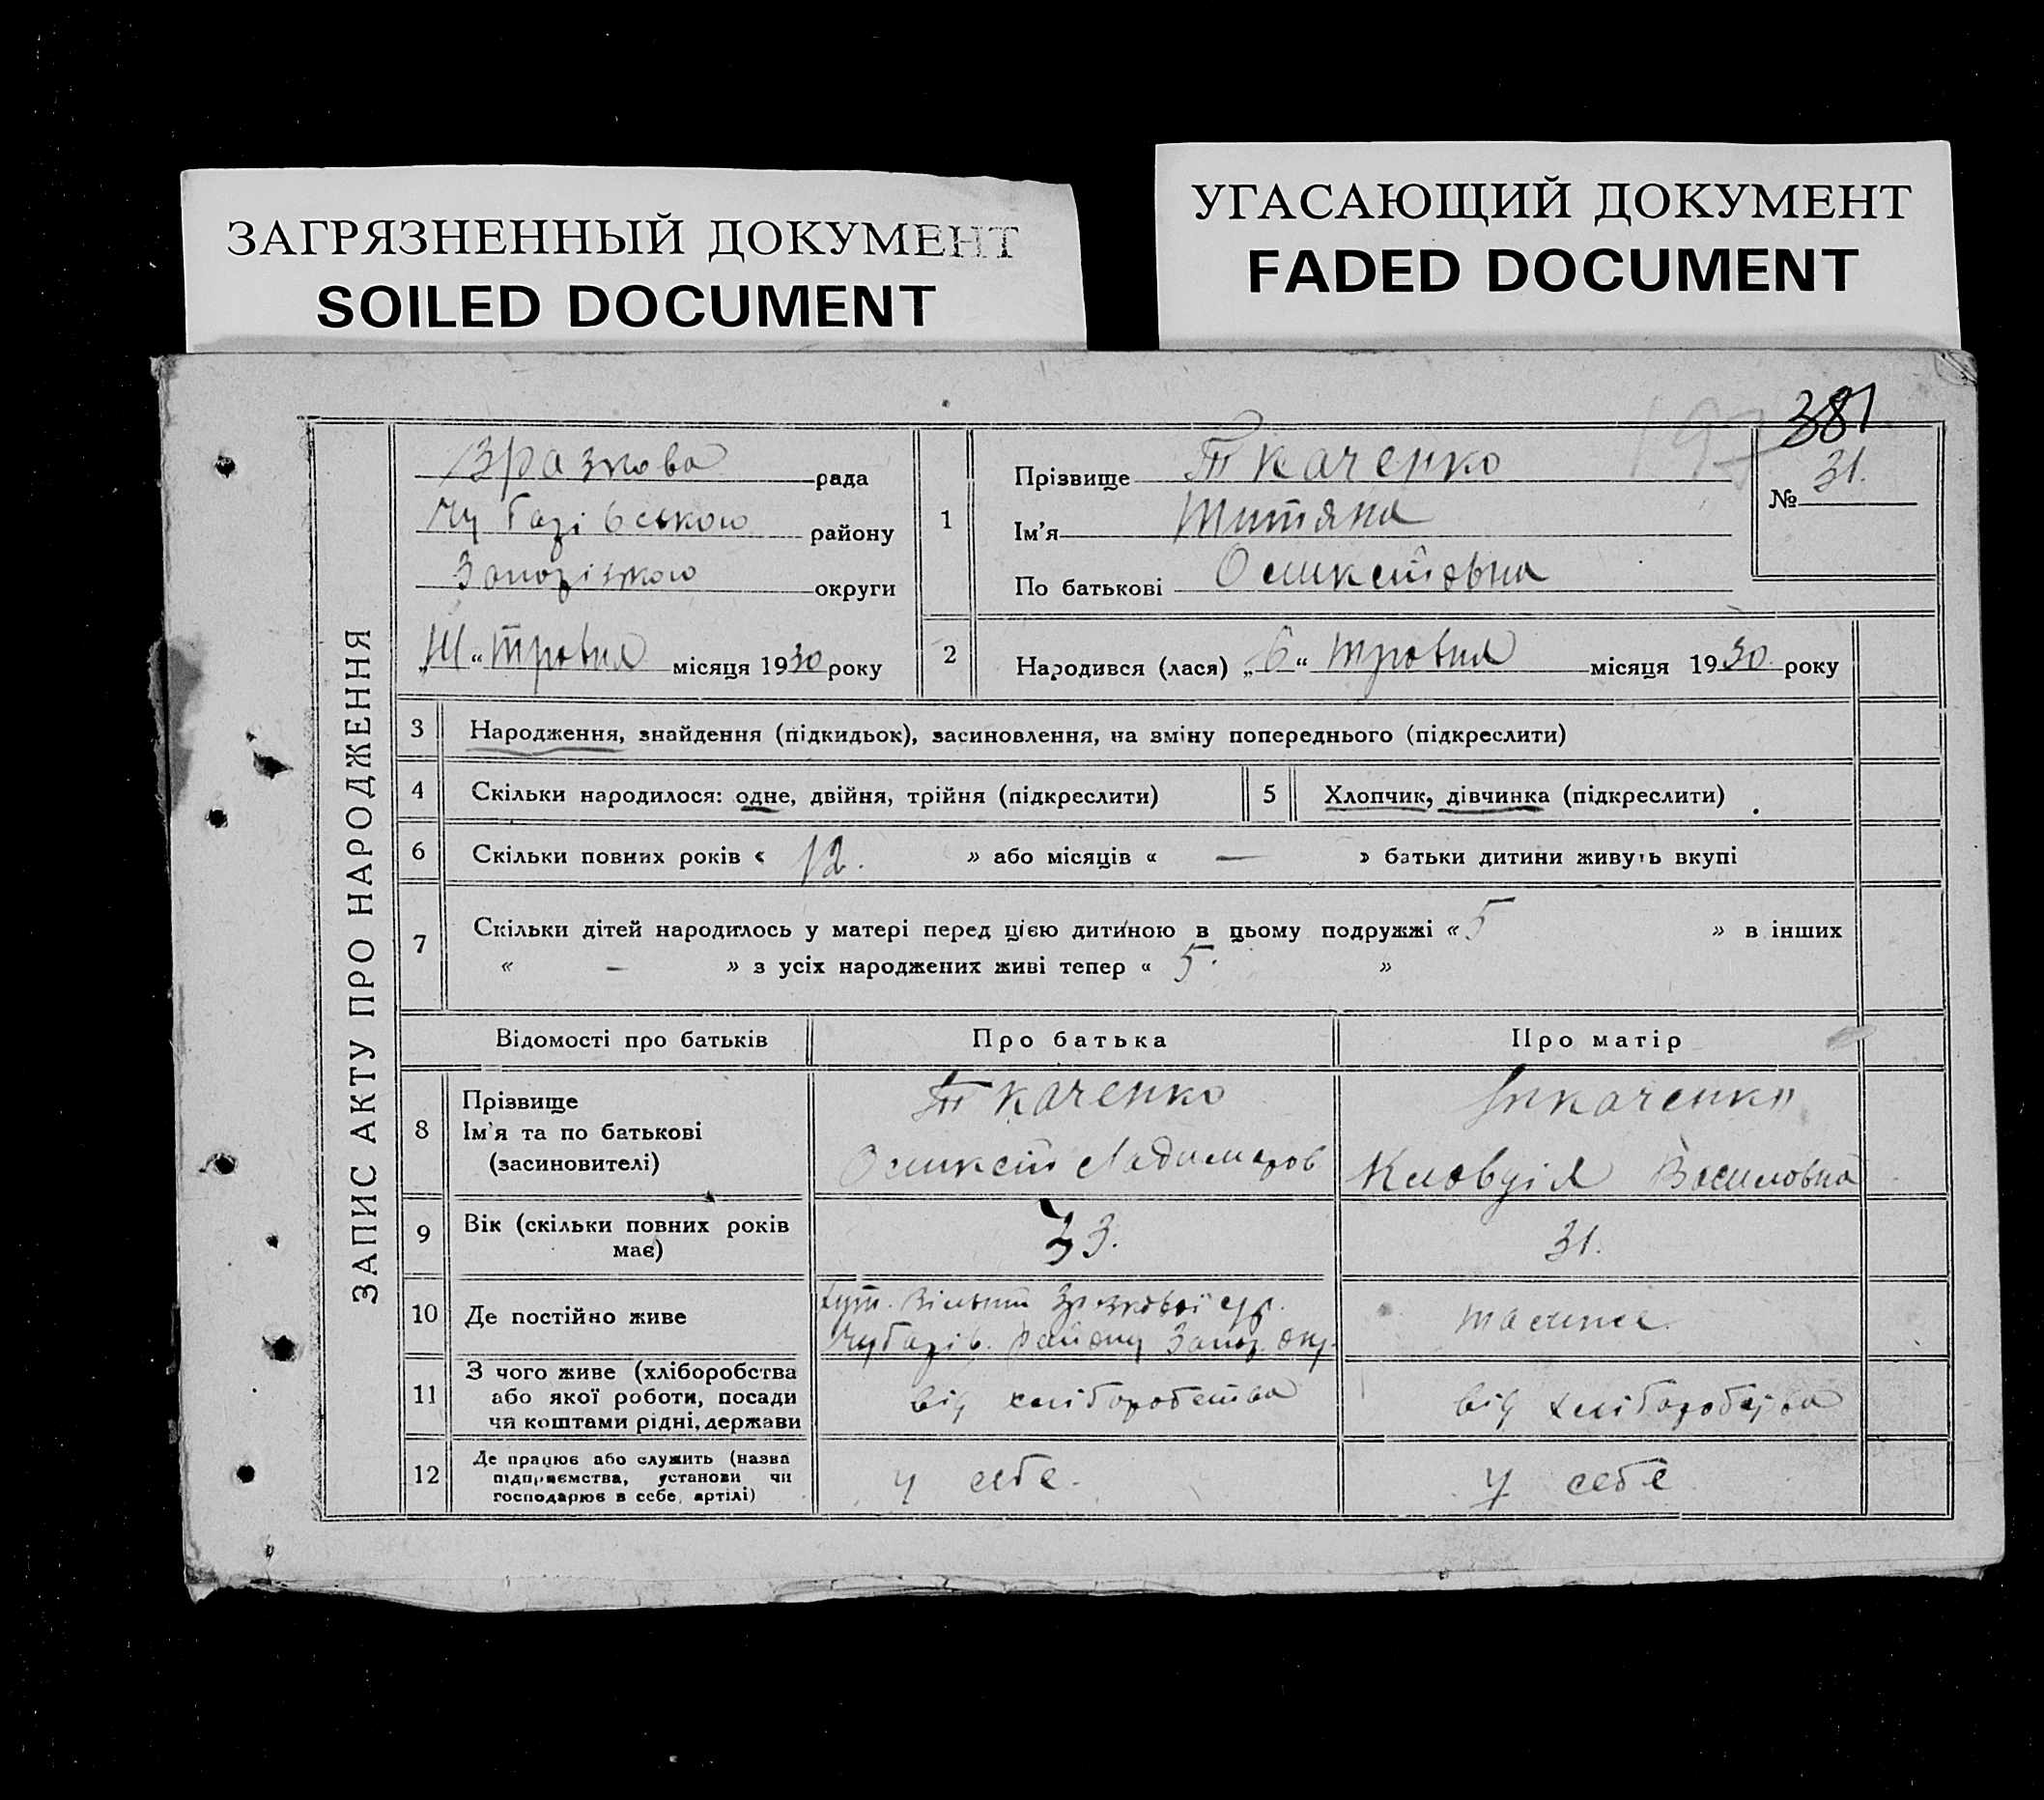 ЗАГРЯЗНЕННЫЙ ДОКУМЕНТ
SOILED DOCUMENT
УГАСАЮЩИЙ ДОКУМЕНТ
FADED DOCUMENT
381
197
ЗАПИС АКТУ ПРО НАРОДЖЕННЯ
Зразкова рада
Чубарівського району
Запорізького округи
травня місяця 1930 року
1
Прізвище Ткаченко
Ім'я Титяна
По батькові
№ 31.
2
Народився (лася) „6“ травня місяця 1930 року
3 Народження, знайдення (підкидьок), засиновлення, на зміну попереднього (підкреслити)
4 Скільки народилося: одне, двійня, трійня (підкреслити)
5 Хлопчик, дівчинка (підкреслити)
6 Скільки повних років « 12. » або місяців « — » батьки дитини живуть вкупі
7 Скільки дітей народилось у матері перед цією дитиною в цьому подружжі « 5 » в інших
« — » з усіх народжених живі тепер « 5. »
Відомості про батьків Про батька Про матір
8 Прізвище
Ім'я та по батькові
(засиновителі)
Ткаченко
Ткаченко
Клавдія Василовна
9 Вік (скільки повних років
має)
33.
31.
10 Де постійно живе
хут. Вільний Зразкової с/р.
Чубарів. району Запор. окр.
11 З чого живе (хліборобства
або якої роботи, посади
чи коштами рідні, держави
від хліборобства
від хліборобства
12 Де працює або служить (назва
підприємства, установи чи
господарює в себе, артілі)
у себе.
у себе